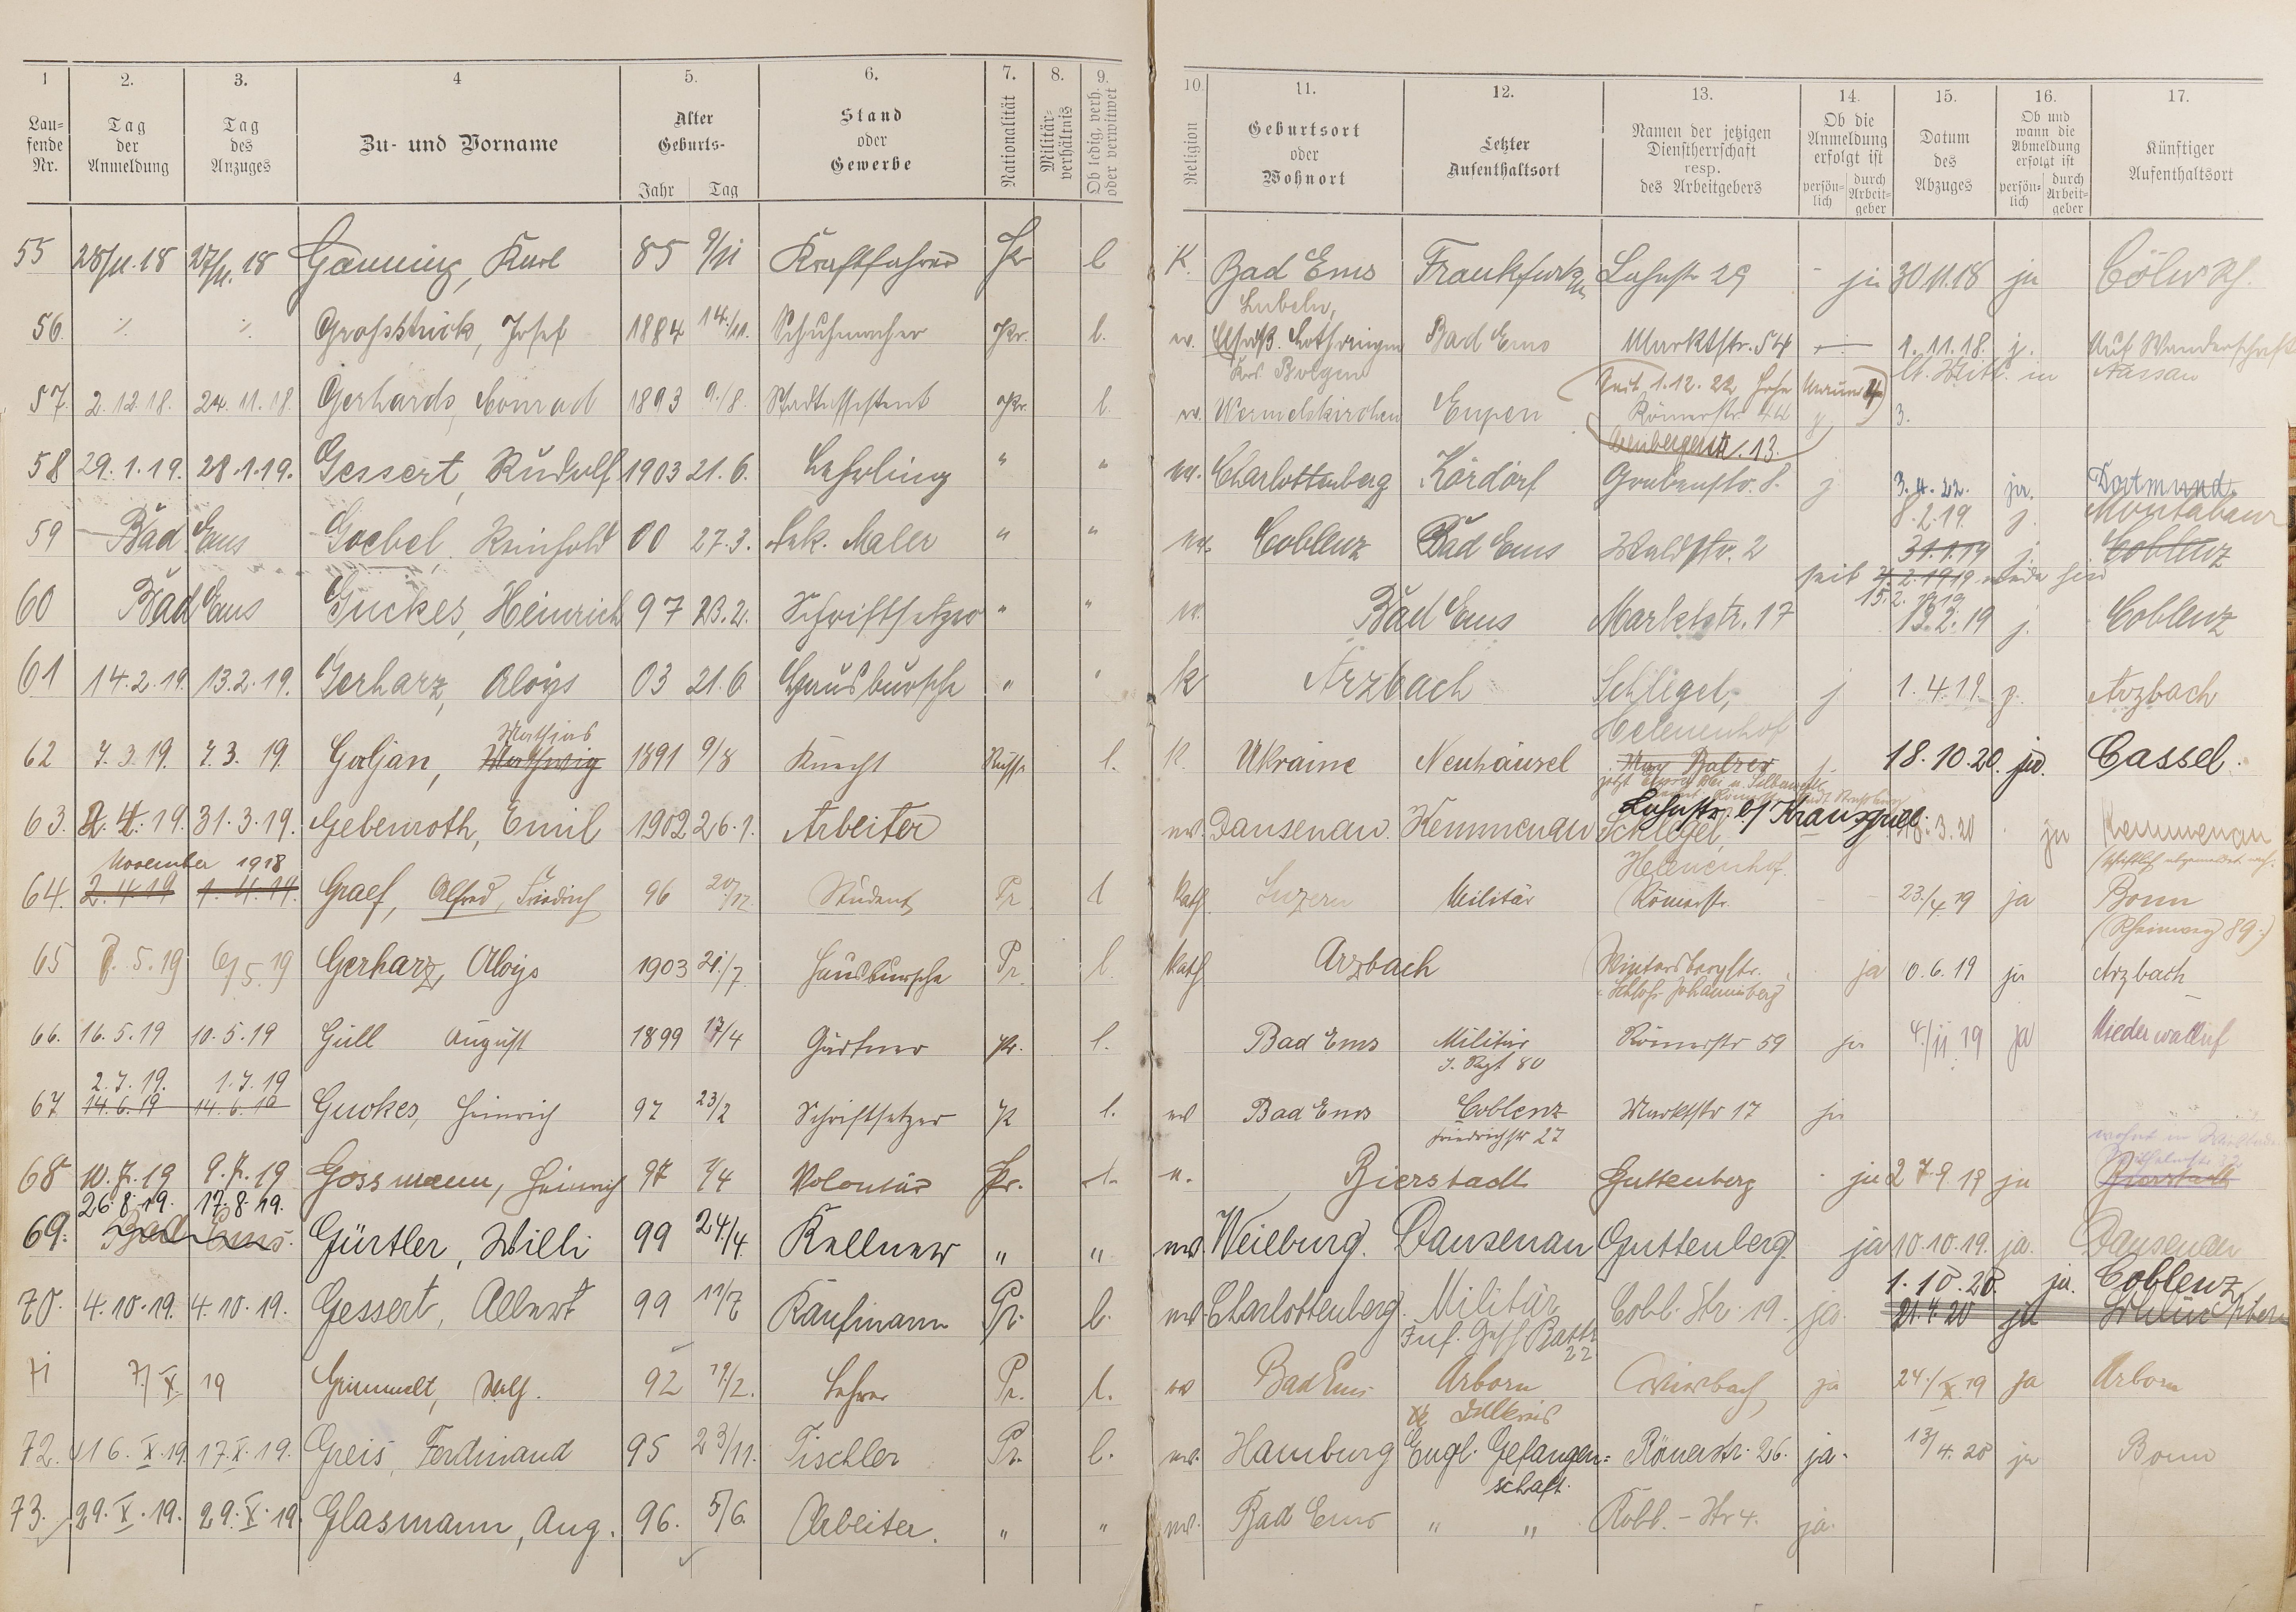 1 2. 3. 4 5. 6. 7. 8. 9. 10. 11. 12. 13. 14. 15. 16. 17.
Lau-
fende
Nr.
Tag
der
Anmeldung
Tag
des
Anzuges
Zu- und Vorname
Alter
Geburts-
Jahr Tag
Stand
oder
Gewerbe
Nationalität
Militär-
verhältnis
Ob ledig, verh.
oder verwitwet
Religion
Geburtsort
oder
Wohnort
Letzter
Aufenthaltsort
Namen der jetzigen
Dienstherrschaft
resp.
des Arbeitgebers
Ob die
Anmeldung
erfolgt ist
persön-
lich
durch
Arbeit-
geber
Datum
des
Abzuges
Ob und
wann die
Abmeldung
erfolgt ist
persön-
lich
durch
Arbeit-
geber
Künftiger
Aufenthaltsort
55 28/11.18 27/11.18 85 9/11 Kraftfahrer Pr l K. Bad Ems Frankfurt Lahnstr 29 - ja 30.11.18 ja Cöln
56. Josef 1884 14./11. Schuhmacher Pr. l. Bad Ems Marktstr. 54 1.11.18. j. Auf Wanderschaft
57. 2.12.18. 24.11.18. Gerhards, Conrad 1893 9./8. Stadtassistent Pr. l. Wermelskirchen Eupen
Römerstr. 44
58 29.1.19. 28.1.19. Gessert, Rudolf 1903 21.6. Lehrling " " Charlottenberg Kördorf Grabenstr. 8. j 3.4.22. ja. Dortmund
8.2.19. j. Montabaur
59 Bad Ems Goebel, Reinhold 00 27.3. Dek. Maler " " Coblenz Bad Ems Waldstr. 2 31.1.19 j. Coblenz
60 Bad Ems Guckes, Heinrich 97 23.2. Schriftsetzer " " Bad Ems Marktstr. 17 13.2.19 j. Coblenz
61 14.2.19. 13.2.19. Gerharz, Aloys 03 21.6 Hausbursche " " K Arzbach j 1.4.19. Arzbach
Helenenhof
Mathias
62 7.3.19. 7.3.19. Goljan, 1891 9/8 Knecht Russe l. K. Ukraine Neuhäusel 18.10.20. ja. Cassel.
63. 2.4.19. 31.3.19. Gebenroth, Emil 1902 26.1. Arbeiter Dausenau. Kemmenau Schlegel, ja Kemmenau
Helenenhof.
November 1918
64. 2.4.19 1.4.19. Graef, Alfred, Friedrich 96 20/12. Student Pr. l kath. Luzern Militär Römerstr. 23/4.19 ja Bonn
(Rheinweg 89.)
65 5.19 6/5.19 Gerharz, Aloys 1903 21./7. Hausbursche Pr. l. kath Arzbach Wintersbergstr. ja 0.6.19 ja Arzbach
Schloss Johannisberg
66. 16.5.19 10.5.19 Gull August 1899 17/4 Gärtner Pr. l. Bad Ems Militär Römerstr 59 ja 4./11 19 ja Niederwalluf
J. Rgt 80
2.7.19. 1.7.19
67 14.6.19 14.6.19 Guckes, Heinrich 97 23/2 Schriftsetzer l. Bad Ems Coblenz Marktstr 17 ja
Friedrichstr 27
68 10.7.19 9.7.19 Gossmann, Heinrich 97 Volontär Pr. Bierstadt Guttenberg ja 27.9.19 ja Bierstadt
26.8.19. 17.8.19.
69. Bad Ems. Gürtler, Willi 99 24/4. Kellner " " Weilburg. Dausenau Guttenberg. ja 10.10.19. ja. Dausenau
1.10.20. ja. Coblenz
70. 4.10.19. 4.10.19. Gessert, Albert 99 Kaufmann Pr. l. Charlottenberg. Militär Cobl. Str. 19. ja. 21.4.20 ja
71 7./X. 19 92 Lehrer Pr. l. Bad Ems Arborn ja 24./X.19 ja Arborn
Dillkreis
72. 16.X.19. 17.X.19. Greis, Ferdinand 95 23/11. Tischler Pr. l. Hamburg Engl. Gefangen- Römerstr. 26. ja. 13/4.20 ja Bonn
schaft.
73. 29.X.19. 29.X.19. Glasmann, Aug. 96. 5/6. Arbeiter. " " Bad Ems " " Kobl.-Str 4. ja.